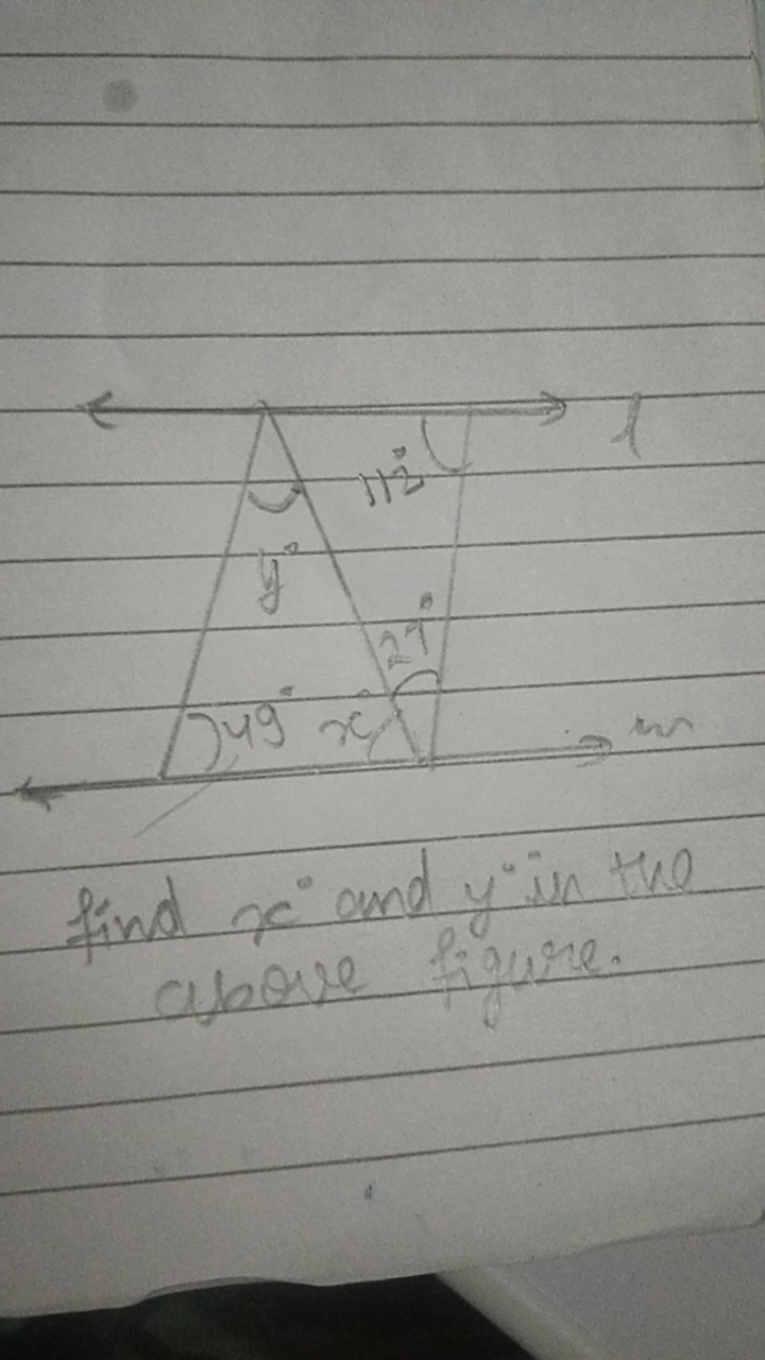 l
112°
y°
27°
49° x°
m
find x° and y° in the
above figure.